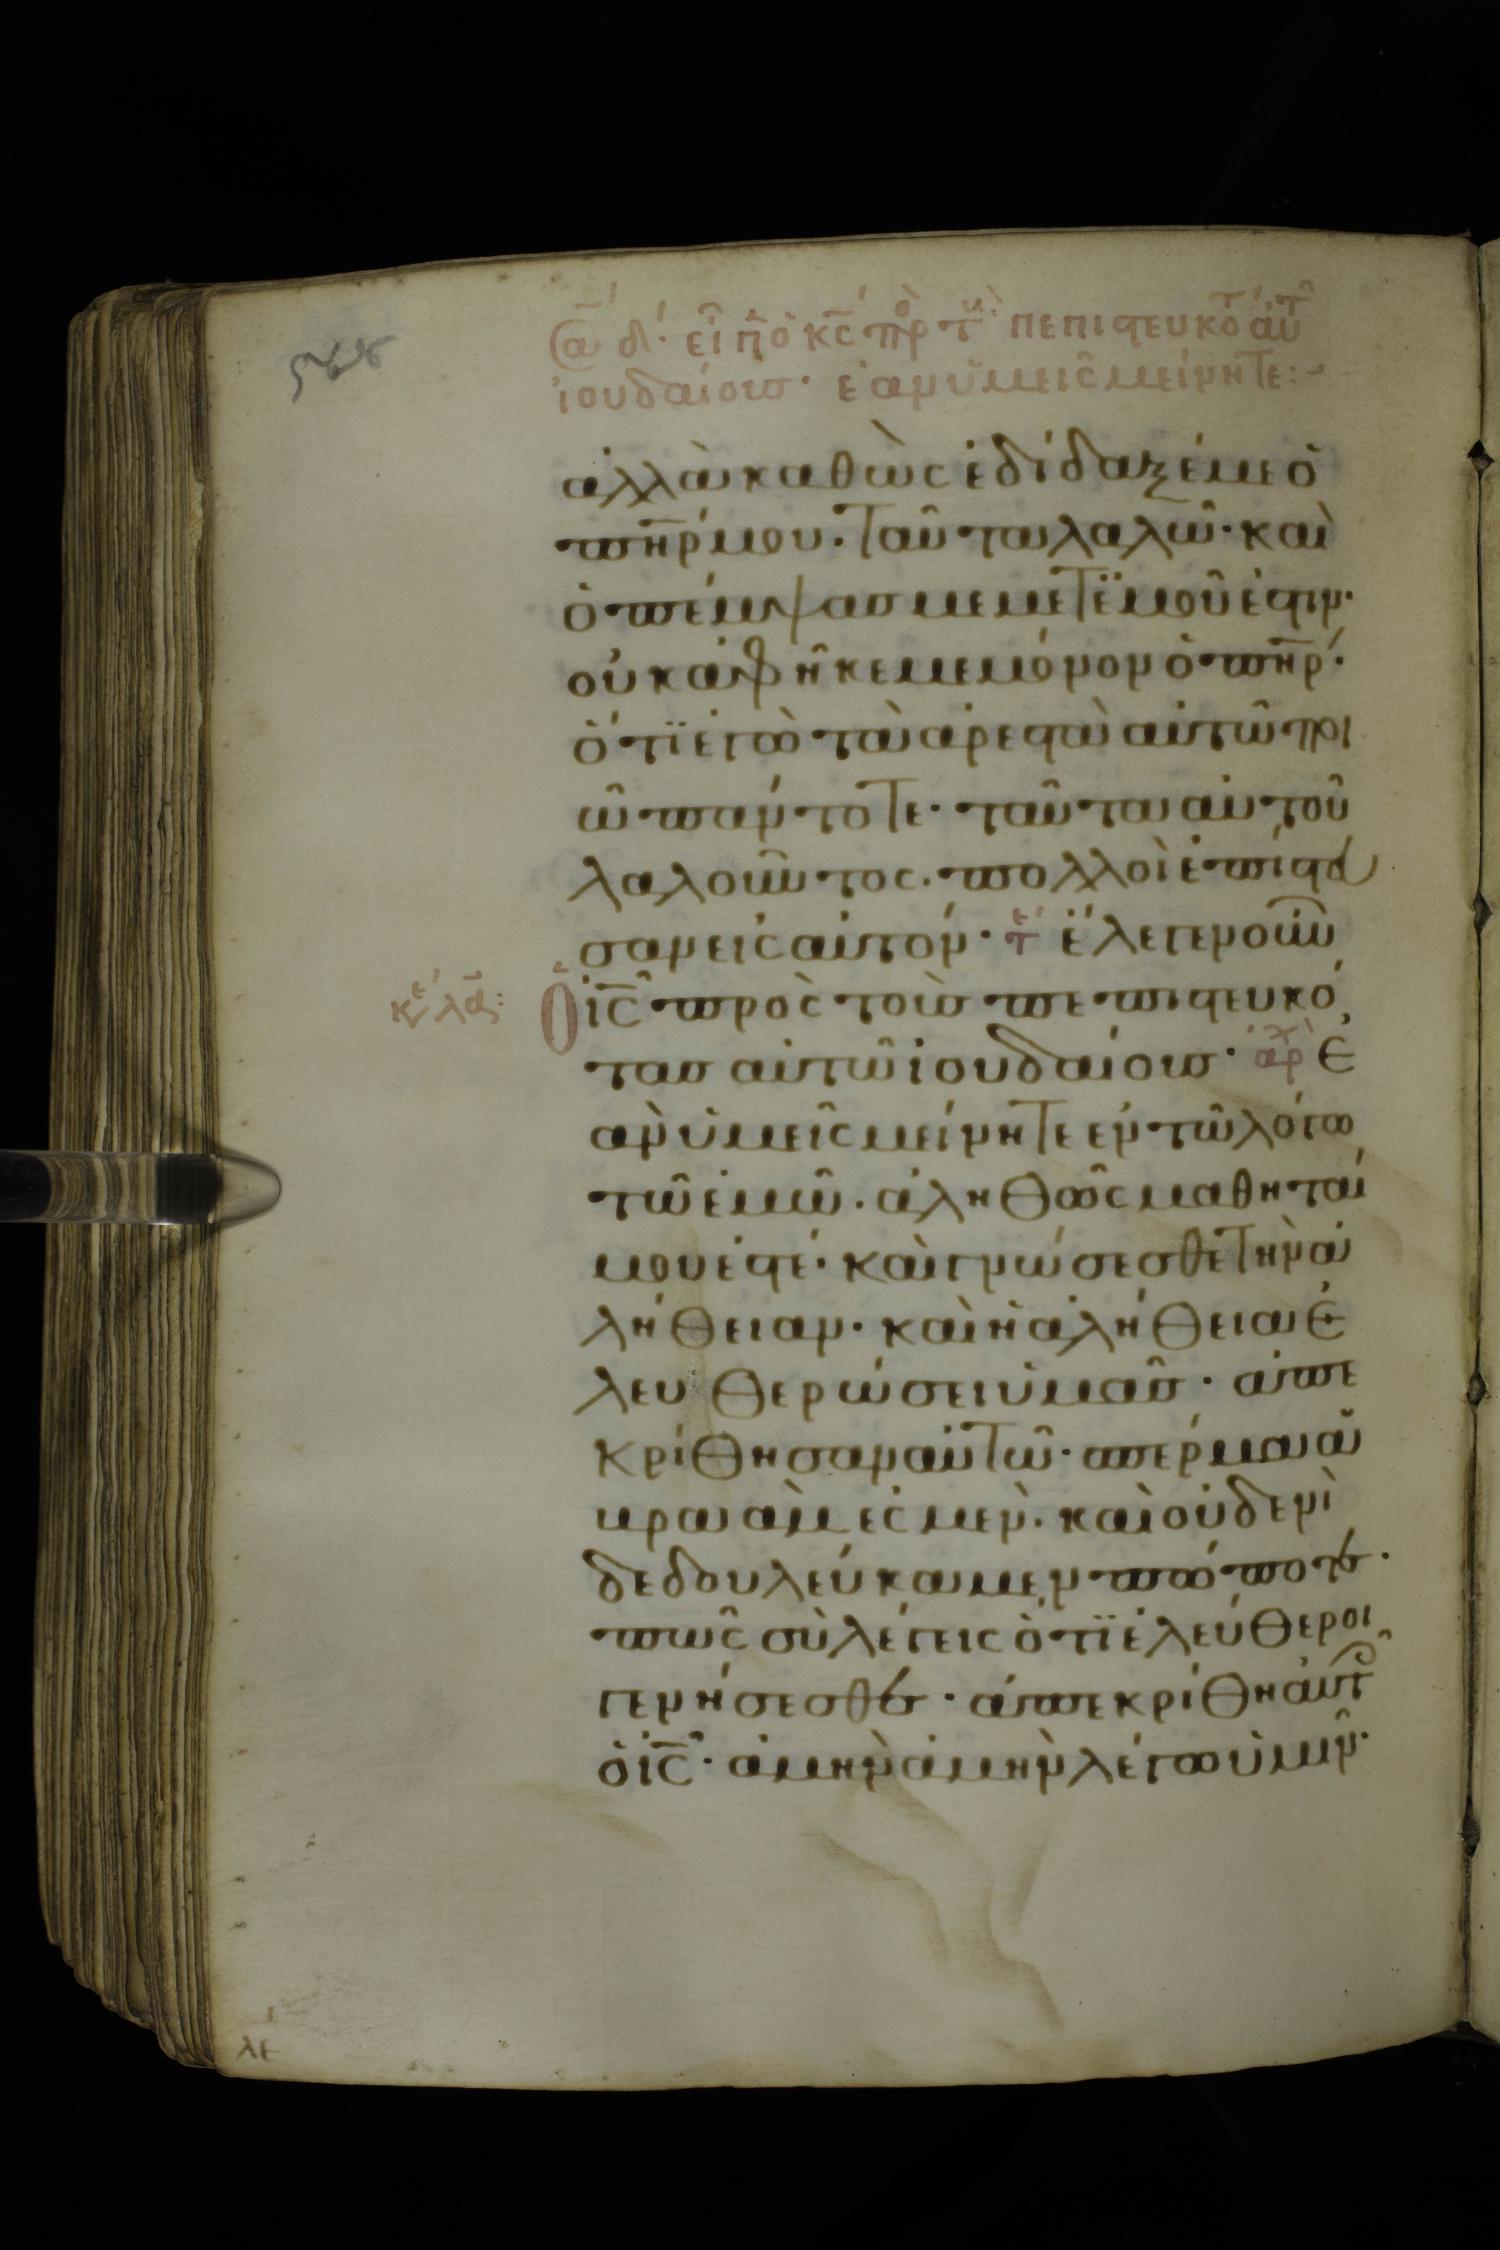 εἶπεν ὁ κς πρ τ πεπιστευκότ αὐτ
ἰουδαίους· ἐὰν ὑμεῖς μείνητε:
ἀλλὰ καθὼς ἐδίδαξέ με ὁ
πηρ μου. ταῦτα λαλῶ· καὶ
ὁ πέμψας με μετ ἐμοῦ ἐστιν·
οὐκ ἀφῆκε με μόνον ὁ πηρ·
ὅτι ἐγὼ τὰ ἀρεστὰ αὐτῶ ποι
ῶ πάντοτε· ταῦτα αὐτοῦ
λαλοῦντος. πολλοὶ ἐπίστευ
σαν εἰς αὐτόν· τ ἔλεγεν οὖν
κ λα: ὁ ις πρὸς τοὺς πεπιστευκό
τας αὐτῶ ἰουδαίους· ἀρχ ἐ
ὰν ὑμεῖς μείνητε ἐν τῶ λόγω
τῶ ἐμῶ. ἀληθῶς μαθηταί
μου ἐστέ· καὶ γνώσεσθε τὴν ἀ
λήθειαν· καὶ ἡ ἀλήθεια ἐ
λευθερώσει ὑμᾶς· ἀπε
κρίθησαν αὐτῶ· σπέρμα ἀ
βραάμ ἐσμεν. καὶ οὐδενὶ
δεδουλεύκαμεν πώποτε·
πῶς σὺ λέγεις ὅτι ἐλεύθεροι
γενήσεσθε· ἀπεκρίθη αὐτοῖς
ὁ ις· ἀμὴν ἀμὴν λέγω ὑμῖν·
λε